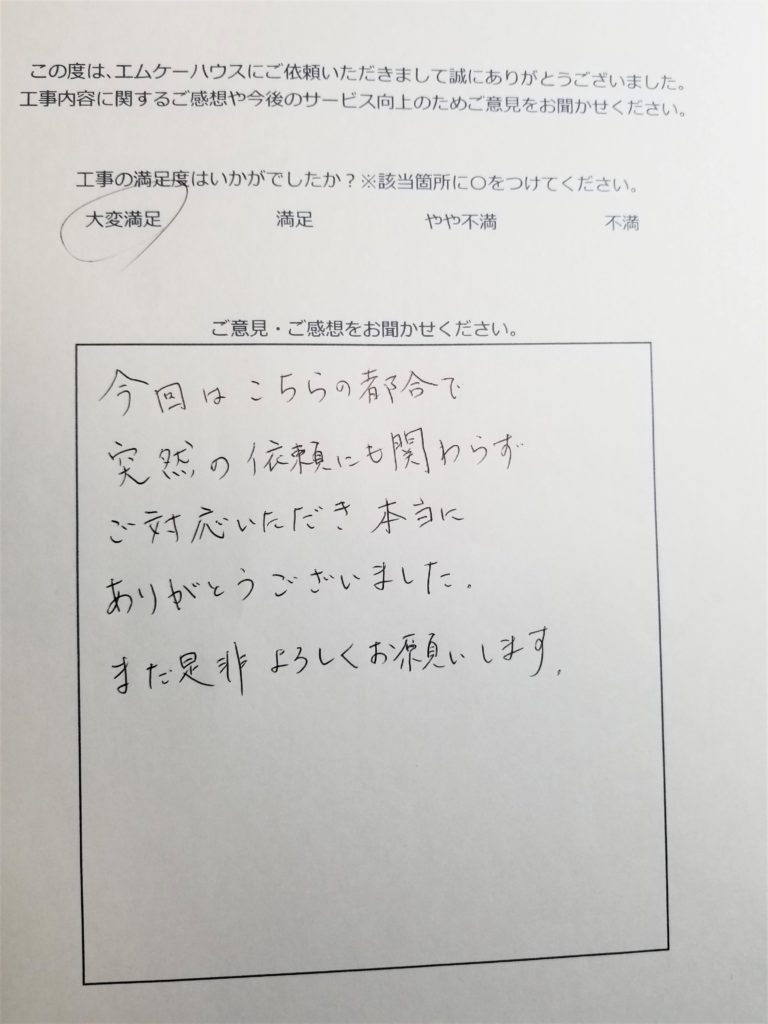 この度は、エムケーハウスにご依頼いただきまして誠にありがとうございました。
工事内容に関するご感想や今後のサービス向上のためご意見をお聞かせください。
工事の満足度はいかがでしたか？※該当箇所に〇をつけてください。
大変満足 満足 やや不満 不満
ご意見・ご感想をお聞かせください。
今回はこちらの都合で
突然の依頼にも関わらず
ご対応いただき本当に
ありがとうございました。
また是非よろしくお願いします。